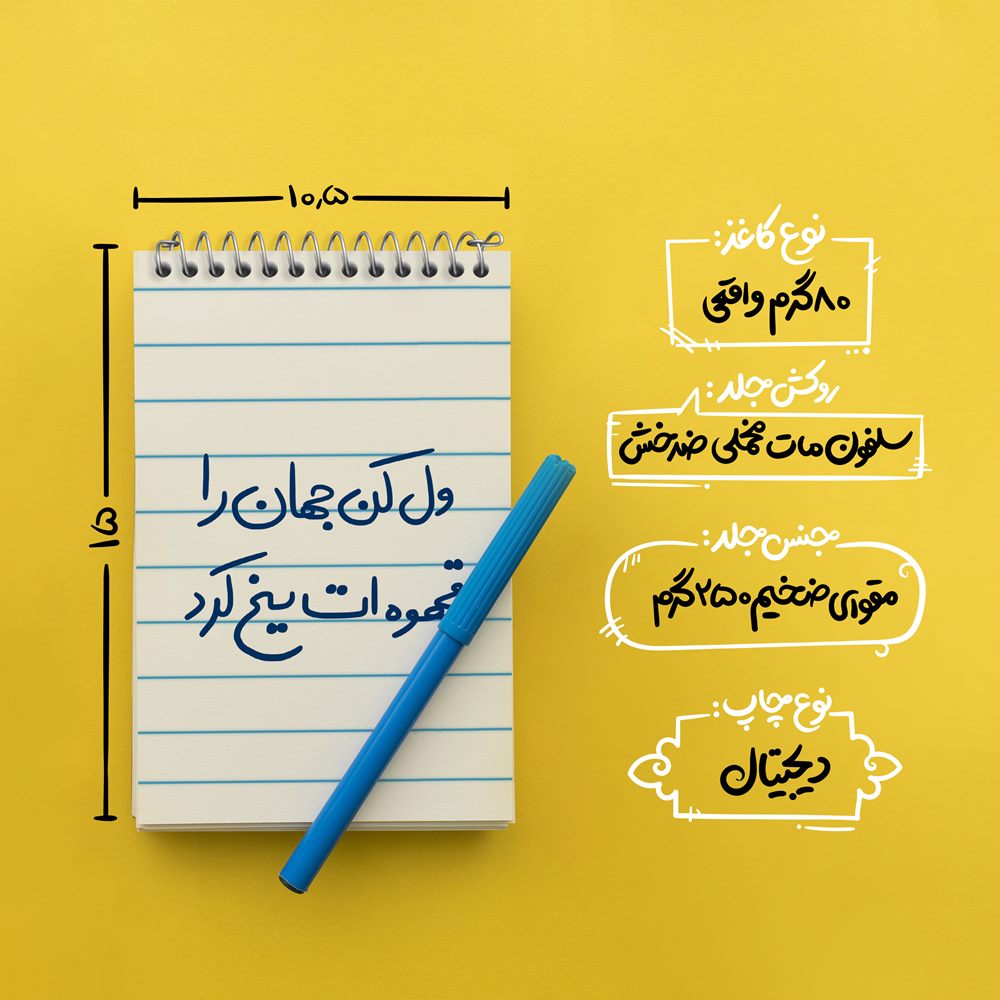 ۱۰٫۵
۱۵
ول کن جهان را
قهوه ات یخ کرد
نوع کاغذ:
۸۰ گرم واقعی
روکش جلد:
سلفون مات مخملی ضدخش
جنس جلد:
مقوای ضخیم ۲۵۰ گرم
نوع چاپ:
دیجیتال